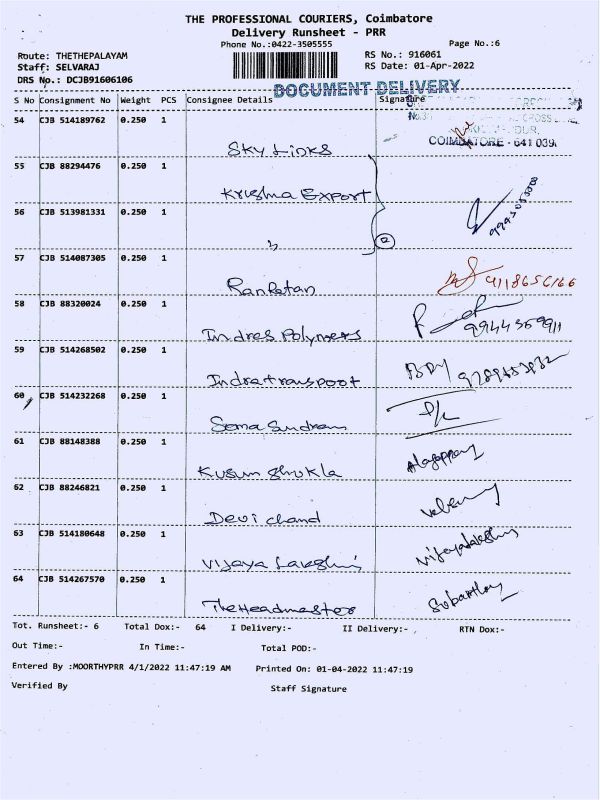 THE PROFESSIONAL COURIERS, Coimbatore
Delivery Runsheet - PRR
Phone No.:0422-3505555
Page No.:6
Route: THETHEPALAYAM
RS No.: 916061
Staff: SELVARAJ
RS Date: 01-Apr-2022
DRS No.: DCJB91606106
DOCUMENT DELIVERY
S No Consignment No Weight PCS Consignee Details Signature
54 CJB 514189762 0.250 1
CROSS
COIMBATORE - 641 039.
Sky Links
55 CJB 88294476 0.250 1
Krishna Export
56 CJB 513981331 0.250 1
2
57 CJB 514087305 0.250 1
9118656166
58 CJB 88320024 0.250 1
Indres Polymers
59 CJB 514268502 0.250 1
Indratranspoot
60 CJB 514232268 0.250 1
Soma Sundram
61 CJB 88148388 0.250 1
Kusum Shukla
62 CJB 88246821 0.250 1
Devi chand
63 CJB 514180648 0.250 1
Vijaya Lakshmi
64 CJB 514267570 0.250 1
The Headmaster
Tot. Runsheet:- 6 Total Dox:- 64 I Delivery:- II Delivery:- RTN Dox:-
Out Time:- In Time:- Total POD:-
Entered By :MOORTHYPRR 4/1/2022 11:47:19 AM Printed On: 01-04-2022 11:47:19
Verified By Staff Signature